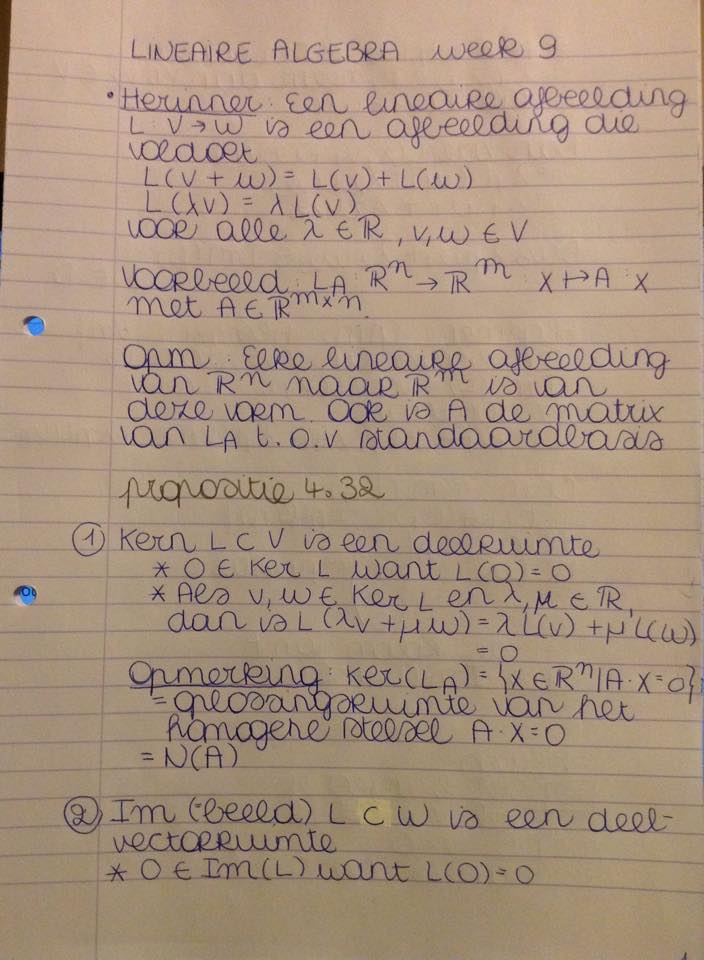 LINEAIRE ALGEBRA week 9
• Herinner: Een lineaire afbeelding
L: V → W is een afbeelding die
voldoet
L(v + w) = L(v) + L(w)
L(λv) = λL(v)
voor alle λ ∈ ℝ, v, w ∈ V
Voorbeeld: L_A: ℝⁿ → ℝᵐ x ↦ A · x
met A ∈ ℝ^{m×n}.
Opm: Elke lineaire afbeelding
van ℝⁿ naar ℝᵐ is van
deze vorm. Ook is A de matrix
van L_A t.o.v standaardbasis
propositie 4.32
① Kern L ⊂ V is een deelruimte
* 0 ∈ Ker L want L(0) = 0
* Als v, w ∈ Ker L en λ, μ ∈ ℝ,
dan is L(λv + μw) = λL(v) + μL(w)
= 0
Opmerking: Ker(L_A) = {x ∈ ℝⁿ | A · x = 0}
= oplossingsruimte van het
homogene stelsel A · x = 0
= N(A)
② Im (=beeld) L ⊂ W is een deel-
vectorruimte
* 0 ∈ Im(L) want L(0) = 0